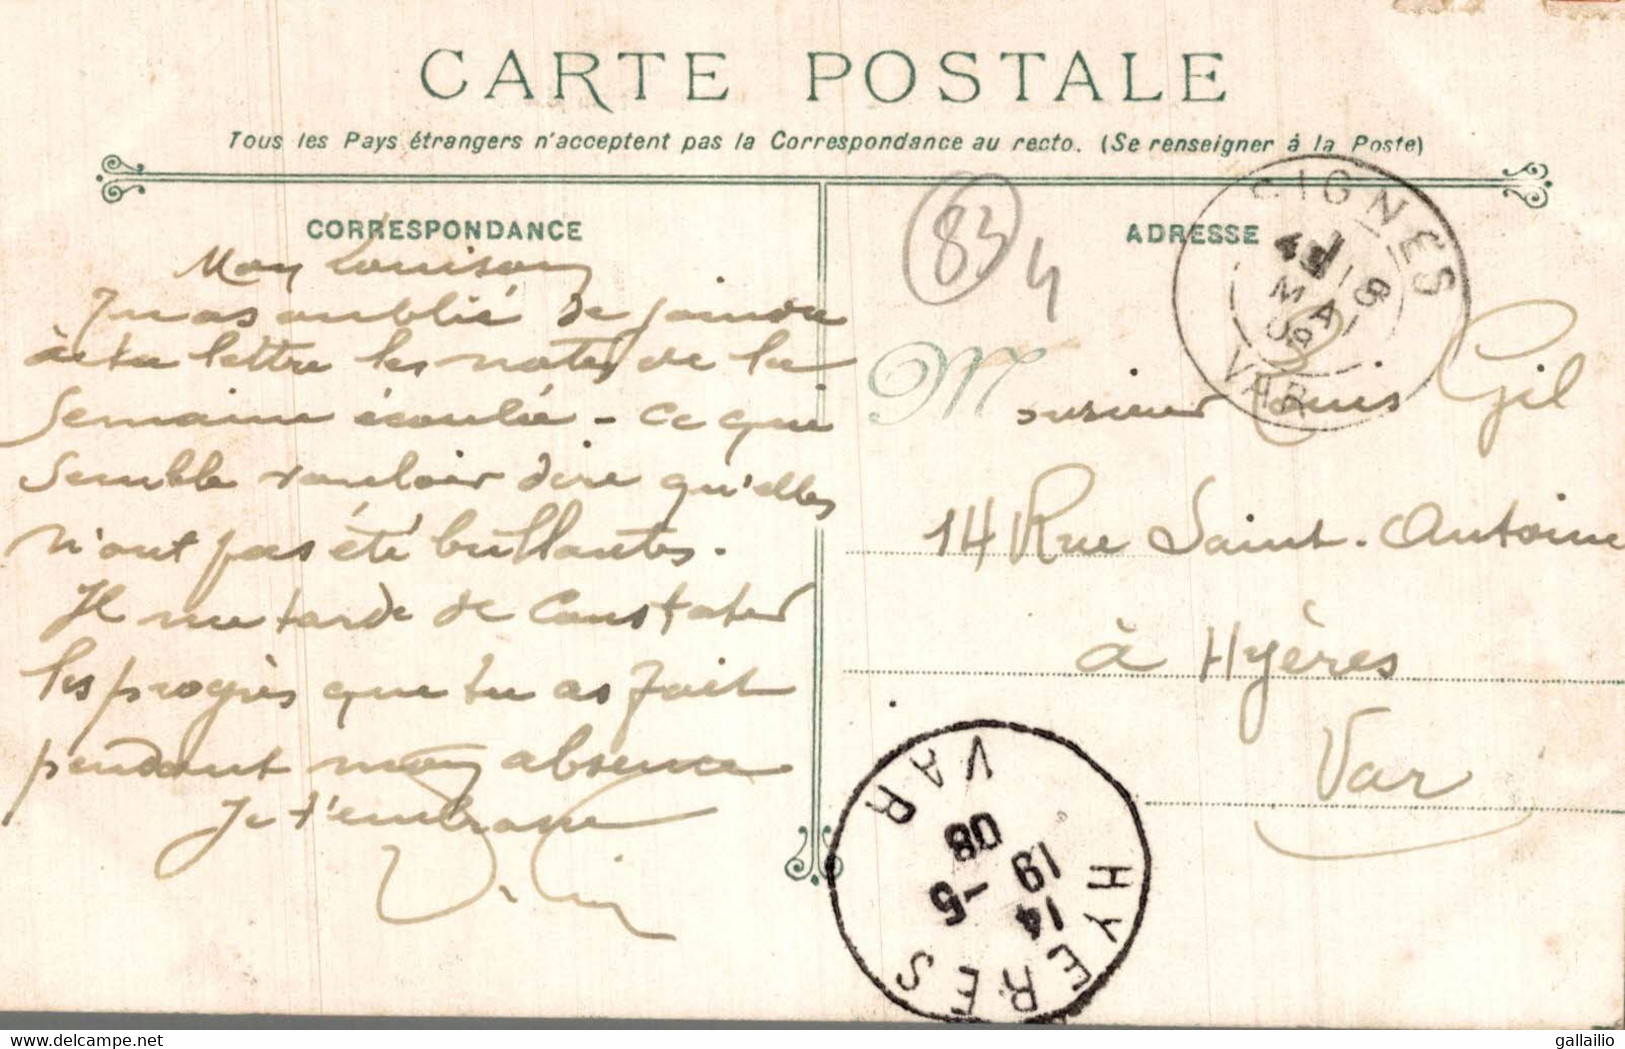 CARTE POSTALE
Tous les Pays étrangers n'acceptent pas la Correspondance au recto. (Se renseigner à la Poste)
CORRESPONDANCE
Mon Louison
Tu as oublié de joindre
à ta lettre les notes de la
semaine écoulée - ce qui
semble vouloir dire qu'elles
n'ont pas été brillantes.
Il me tarde de constater
les progrès que tu as fait
pendant mon absence
Je t'embrasse
83
4
ADRESSE
Monsieur Louis Gil
14 Rue Saint-Antoine
à Hyères
Var
SIGNES
MAI
08
VAR
HYERES
14
19
-5
08
VAR
gallailio